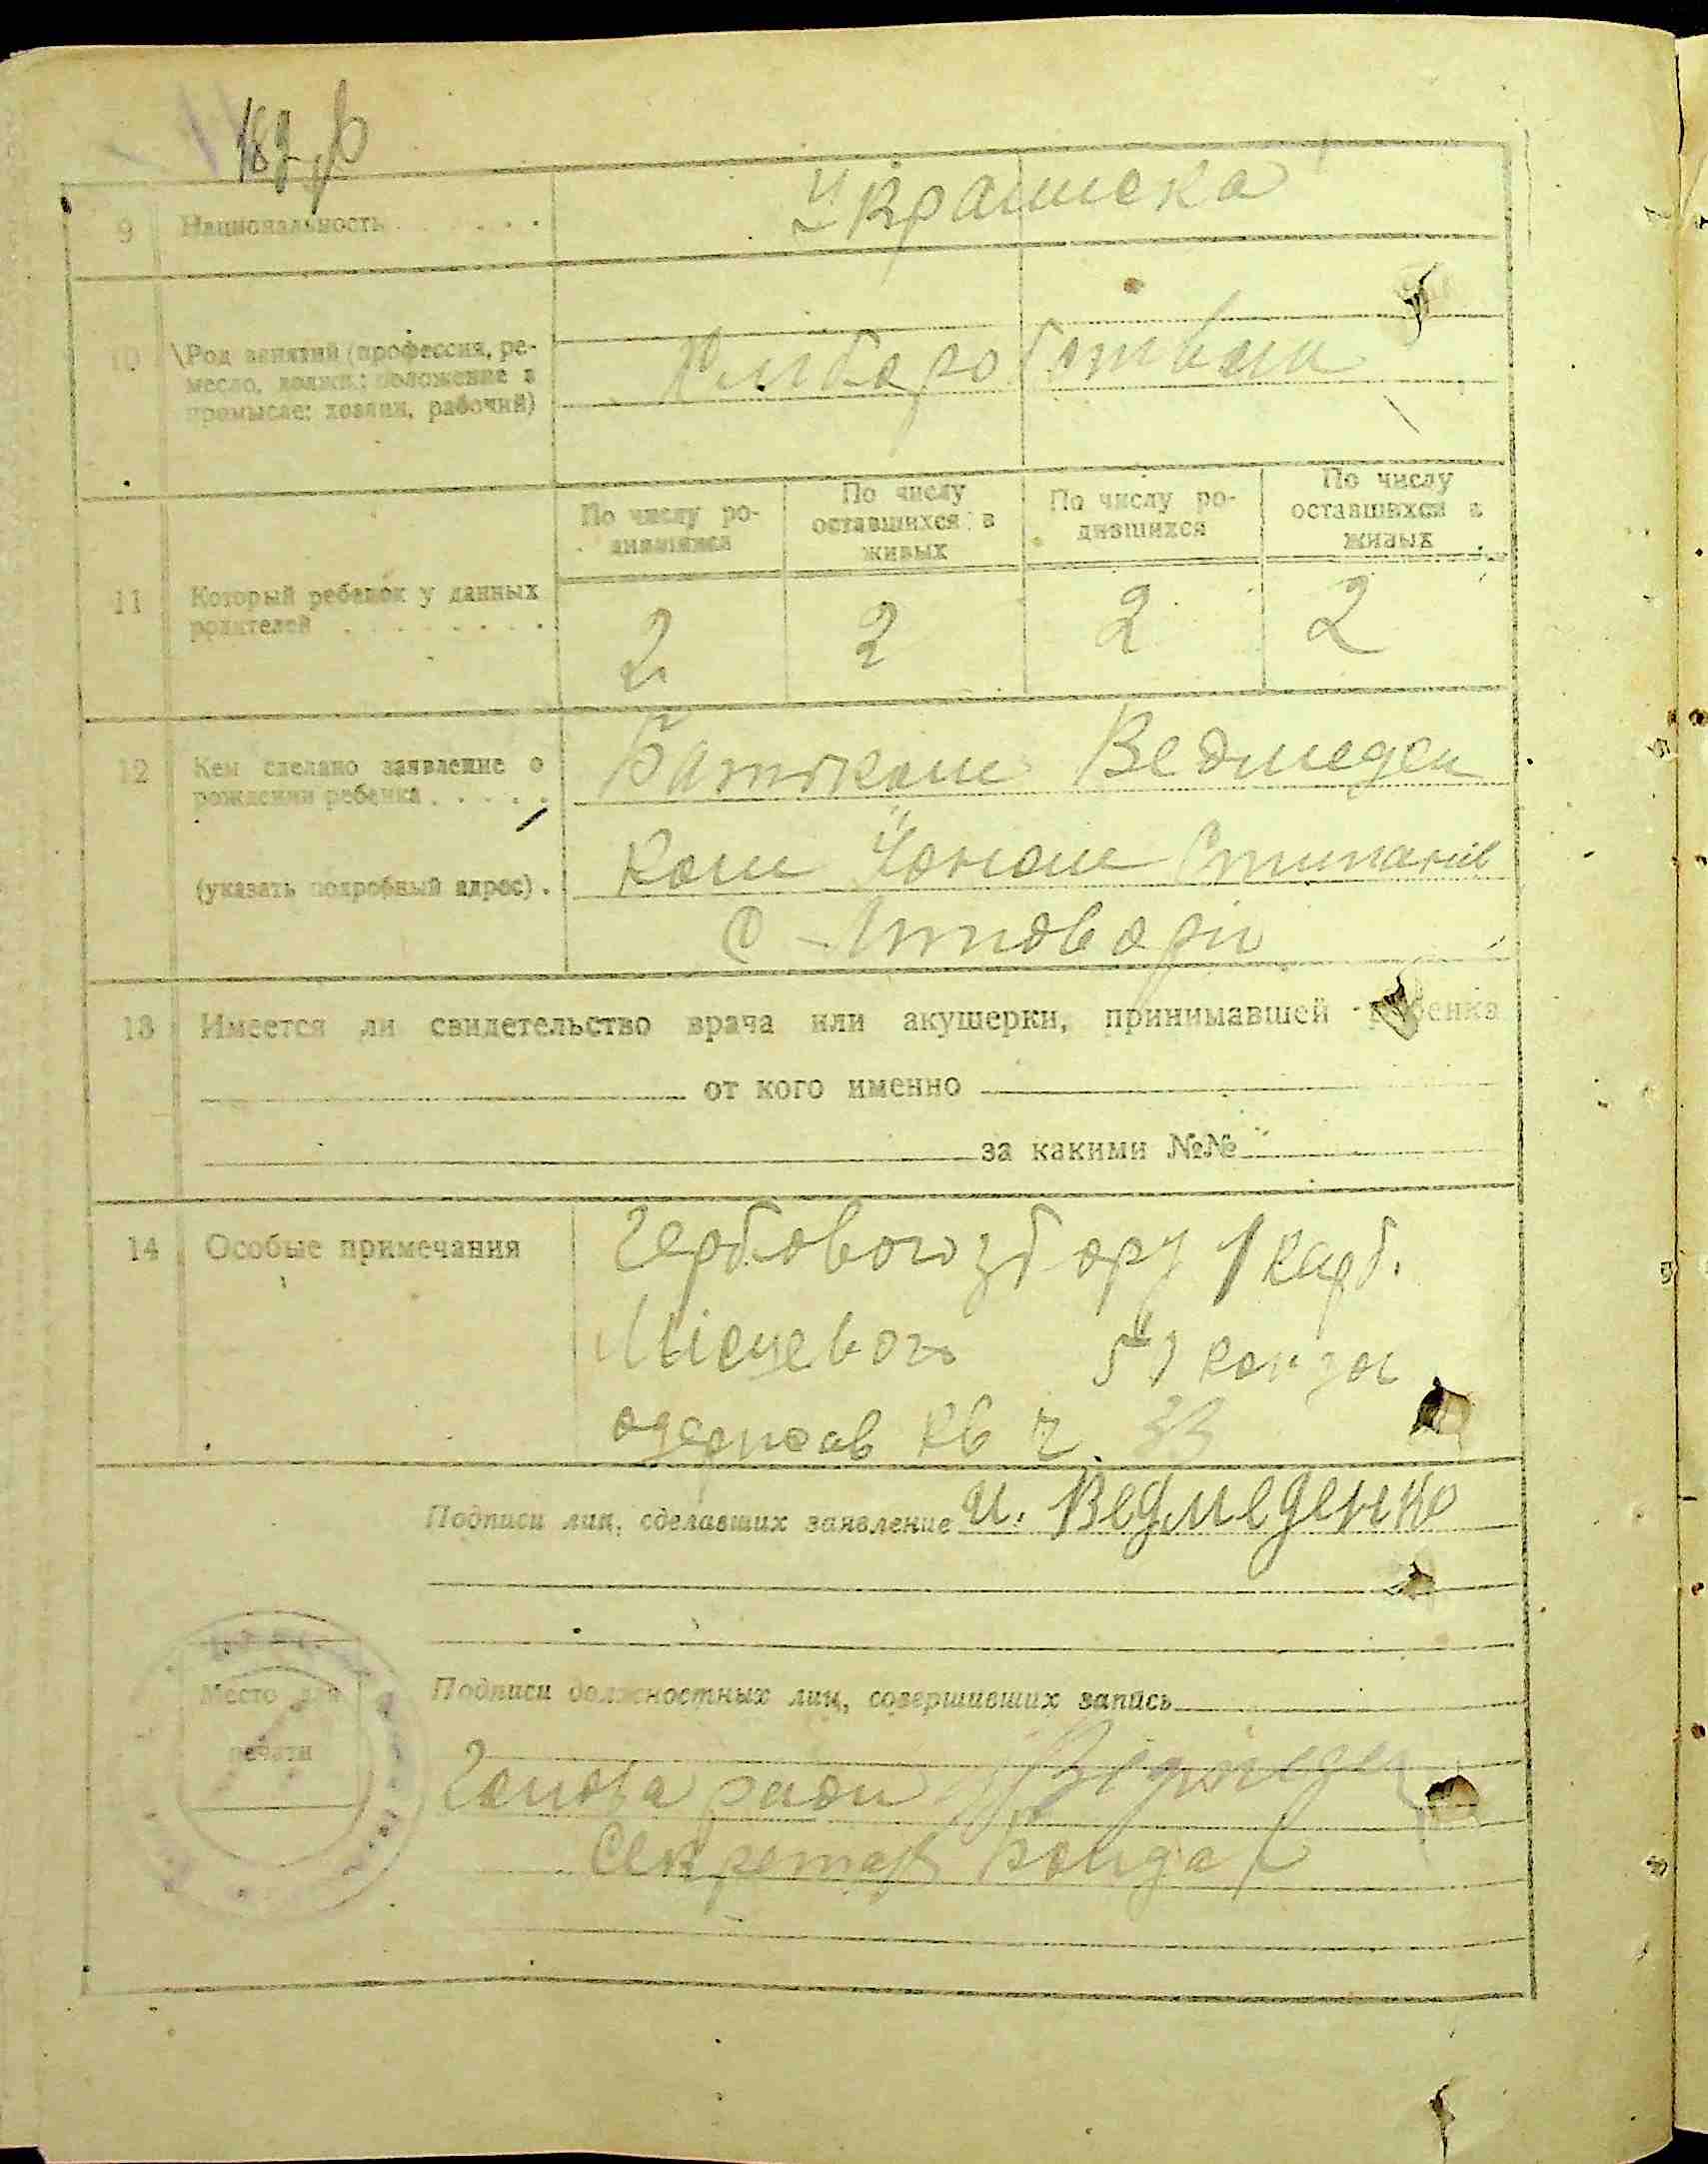 9 Национальность Українська
10 Род занятий (профессия, ре-
месло, должн.; положение в
промысле: хозяин, рабочий)
Хліборобством
По числу ро-
дившихся
По числу
оставшихся в
живых
По числу ро-
дившихся
По числу
оставшихся в
живых
11 Который ребенок у данных
родителей
2 2 2 2
12 Кем сделано заявление о
рождении ребенка
(указать подробный адрес).
Батьком Ведмеден
ком
С
13 Имеется ли свидетельство врача или акушерки, принимавшей ребенка
от кого именно
за какими №№
14 Особые примечания
Гербового збору 1 карб.
Місцевого
одержав кв ч. 33
Подписи лиц, сделавших заявление И. Ведмеденко
Подписи должностных лиц, совершивших запись
Место для
печати
Голова ради
Секретар